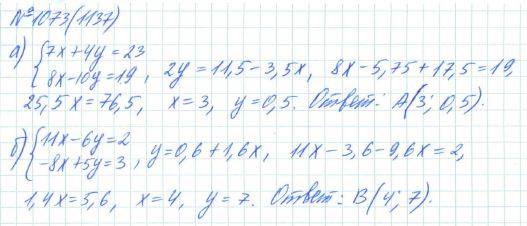 №1073(1137)
а) {7x+4y=23
8x-10y=19, 2y=11,5-3,5x, 8x-5,75+17,5=19,
25,5x=76,5, x=3, y=0,5. Ответ: A(3; 0,5).
б) {11x-6y=2
-8x+5y=3, y=0,6+1,6x, 11x-3,6-9,6x=2,
1,4x=5,6, x=4, y=7. Ответ: B(4; 7).